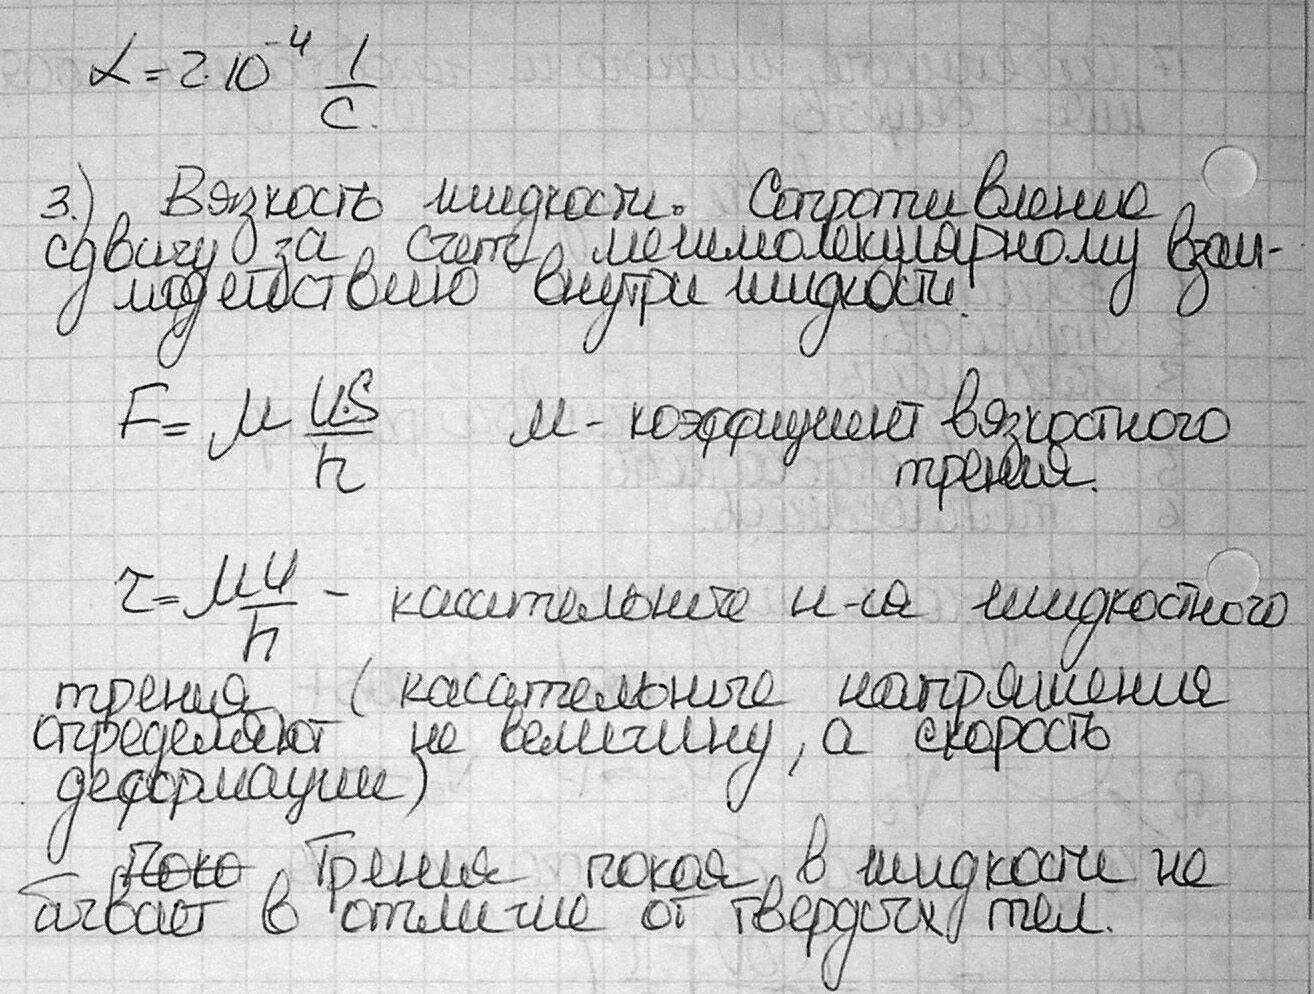 α = 2·10⁻⁴ 1/с.
3.) Вязкость жидкости. Сопротивление
сдвигу за счет межмолекулярному взаи-
модействию внутри жидкости.
F = μ u·S/h μ - коэффициент вязкостного
трения.
τ = μ u/h - касательные н-ия жидкостного
трения (касательные напряжения
определяют не величину, а скорость
деформации)
Поко Трения покоя в жидкости не
бывает в отличие от твердых тел.